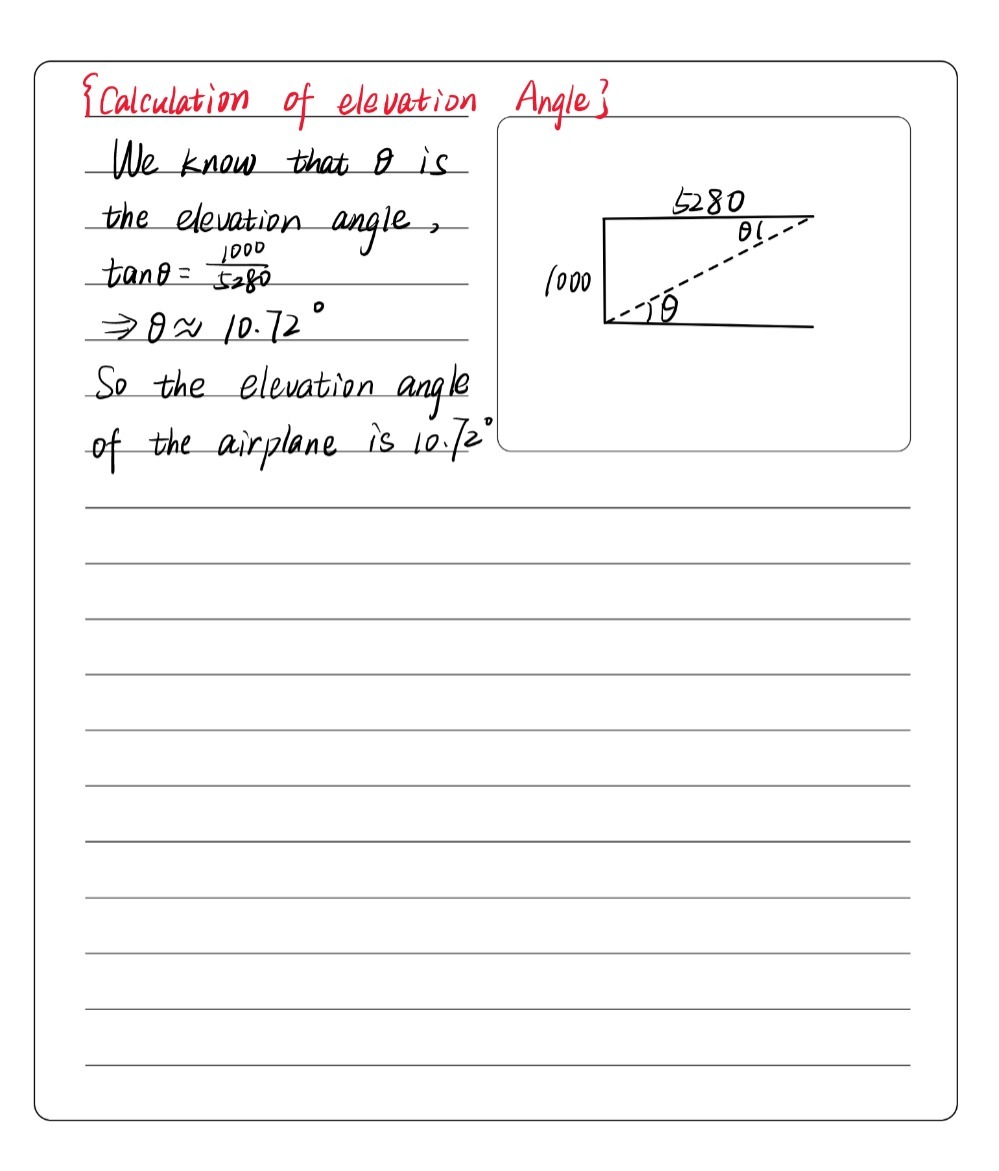 {Calculation of elevation Angle}
We know that θ is
the elevation angle,
tanθ = 1000/5280
⇒ θ ≈ 10.72°
So the elevation angle
of the airplane is 10.72°
5280
θ
1000
θ